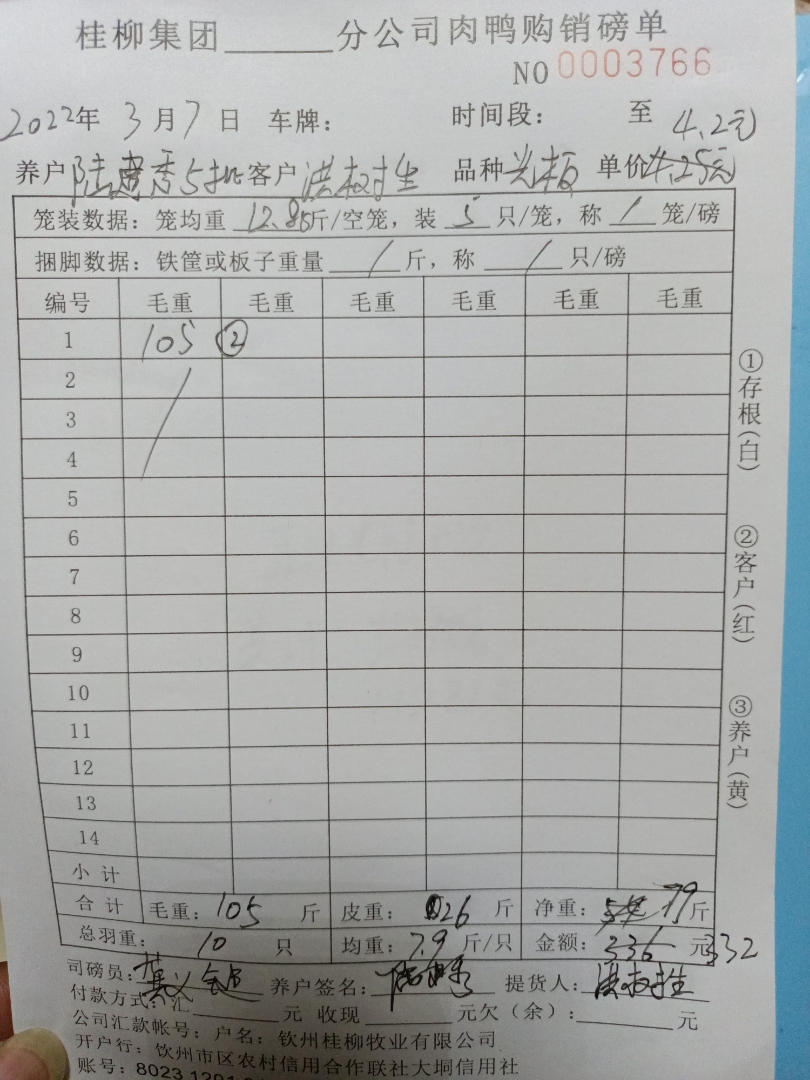 桂柳集团______分公司肉鸭购销磅单
NO 0003766
2022年 3月7日 车牌： 时间段： 至
4.2元
养户 陆 秀5批 客户 洪权 生 品种 光板 单价4.25元
笼装数据：笼均重 12.85斤/空笼，装 5 只/笼，称 1 笼/磅
捆脚数据：铁筐或板子重量 / 斤，称 / 只/磅
编号 毛重 毛重 毛重 毛重 毛重 毛重
1 105 ②
2
3
4
5
6
7
8
9
10
11
12
13
14
小计
合计 毛重：105 斤 皮重：26 斤 净重：79斤
总羽重：10 只 均重：7.9 斤/只 金额：336 元 332
司磅员： 养户签名： 提货人：洪权 生
付款方式：汇______元 收现______元欠（余）：______元
公司汇款帐号：户名：钦州桂柳牧业有限公司
开户行：钦州市区农村信用合作联社大垌信用社
账号：8023 1201
①存根（白）
②客户（红）
③养户（黄）